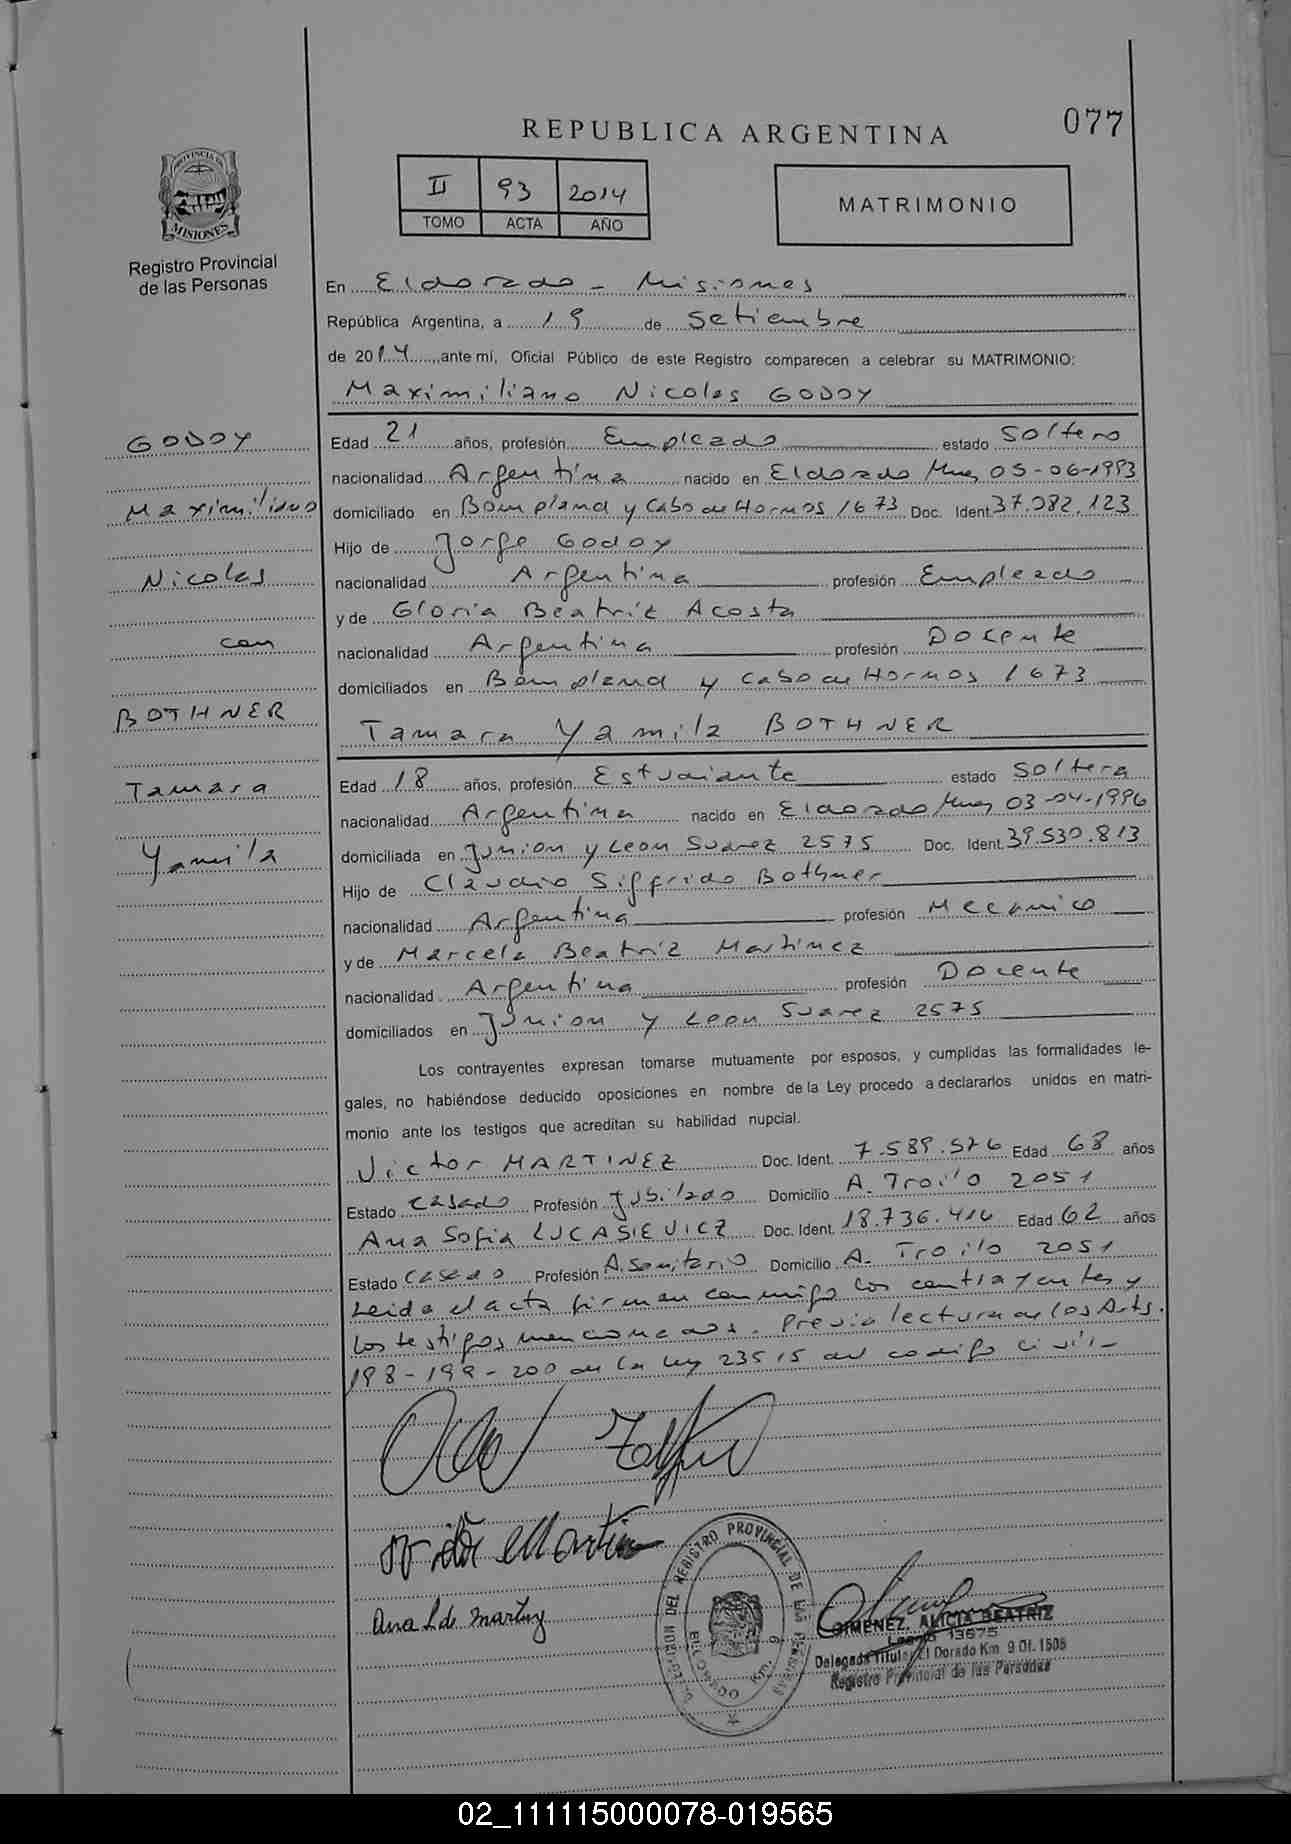 077
REPUBLICA ARGENTINA
II 93 2014
TOMO ACTA AÑO
MATRIMONIO
PROVINCIA DE
MISIONES
Registro Provincial
de las Personas
En Eldorado - Misiones
República Argentina, a 19 de Setiembre
de 2014 ante mí, Oficial Público de este Registro comparecen a celebrar su MATRIMONIO:
Maximiliano Nicolas GODOY
GODOY
Maximiliano
Nicolas
con
BOTHNER
Tamara
Yamila
Edad 21 años, profesión Empleado estado Soltero
nacionalidad Argentina nacido en Eldorado Mnes 05-06-1993
domiciliado en Bompland y Cabo de Hornos 1673 Doc. Ident. 37.082.123
Hijo de Jorge Godoy
nacionalidad Argentina profesión Empleado
y de Gloria Beatriz Acosta
nacionalidad Argentina profesión Docente
domiciliados en Bompland y Cabo de Hornos 1673
Tamara Yamila BOTHNER
Edad 18 años, profesión Estudiante estado Soltera
nacionalidad Argentina nacido en Eldorado Mnes 03-04-1996
domiciliada en Junion y Leon Suarez 2575 Doc. Ident. 39.530.813
Hijo de Claudio Sigfrido Bothner
nacionalidad Argentina profesión Mecanico
y de Marcela Beatriz Martinez
nacionalidad Argentina profesión Docente
domiciliados en Junion y Leon Suarez 2575
Los contrayentes expresan tomarse mutuamente por esposos, y cumplidas las formalidades le-
gales, no habiéndose deducido oposiciones en nombre de la Ley procedo a declararlos unidos en matri-
monio ante los testigos que acreditan su habilidad nupcial.
Victor MARTINEZ Doc. Ident. 7.589.576 Edad 68 años
Estado Casado Profesión Jubilado Domicilio A. Troilo 2051
Ana Sofia LUCASIEVICZ Doc. Ident. 18.736.416 Edad 62 años
Estado Casado Profesión A. Sanitario Domicilio A. Troilo 2051
Leida el acta firman conmigo los contrayentes y
los testigos mencionados. Previa lectura de los Arts.
198-199-200 de la Ley 23515 del codigo civil-
Ana L de Martinez
REGISTRO PROVINCIAL DE LAS PERSONAS
ELDORADO Km. 9
GIMENEZ, ALICIA BEATRIZ
Legajo 13675
Delegada Titular El Dorado Km. 9 Of. 1508
Registro Provincial de las Personas
02_111115000078-019565